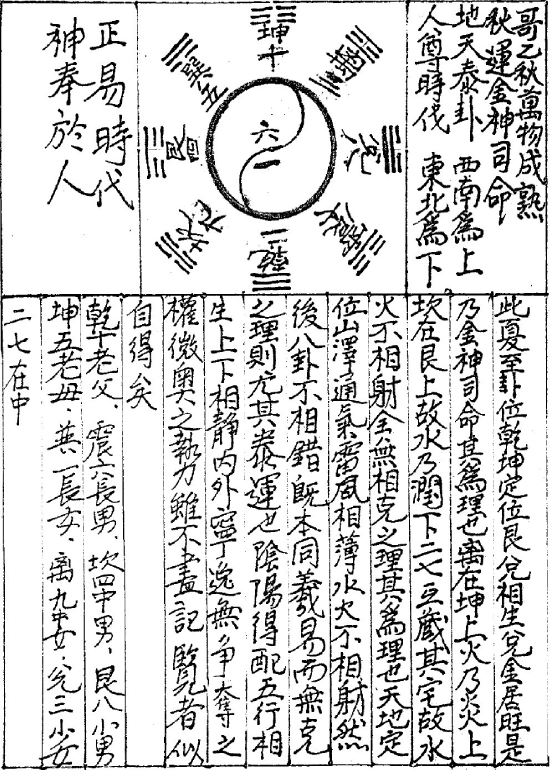 哥乙秋萬物成熟
秋運金神司命
地天泰卦 西南為上
人尊時代 東北為下
坤十
巽五
艮
六一
二乾
正易時代
神奉於人
此夏至卦位乾坤定位艮兌相生兌金居旺是
乃金神司命其為理也离在坤上火乃炎上
坎在艮上故水乃潤下二七互藏其宅故水
火不相射金無相克之理其為理也天地定
位山澤通氣雷風相薄水火不相射然
後八卦不相錯既本同羲易而無克
之理則尤其泰運也陰陽得配五行相
生上下相静内外寧逸無爭奪之
權微奧之執力雖不盡記賢者似
自得矣
乾十老父、震六長男、坎四中男、艮八小男
坤五老母、巽一長女、离九中女、兌三小女
二七在中